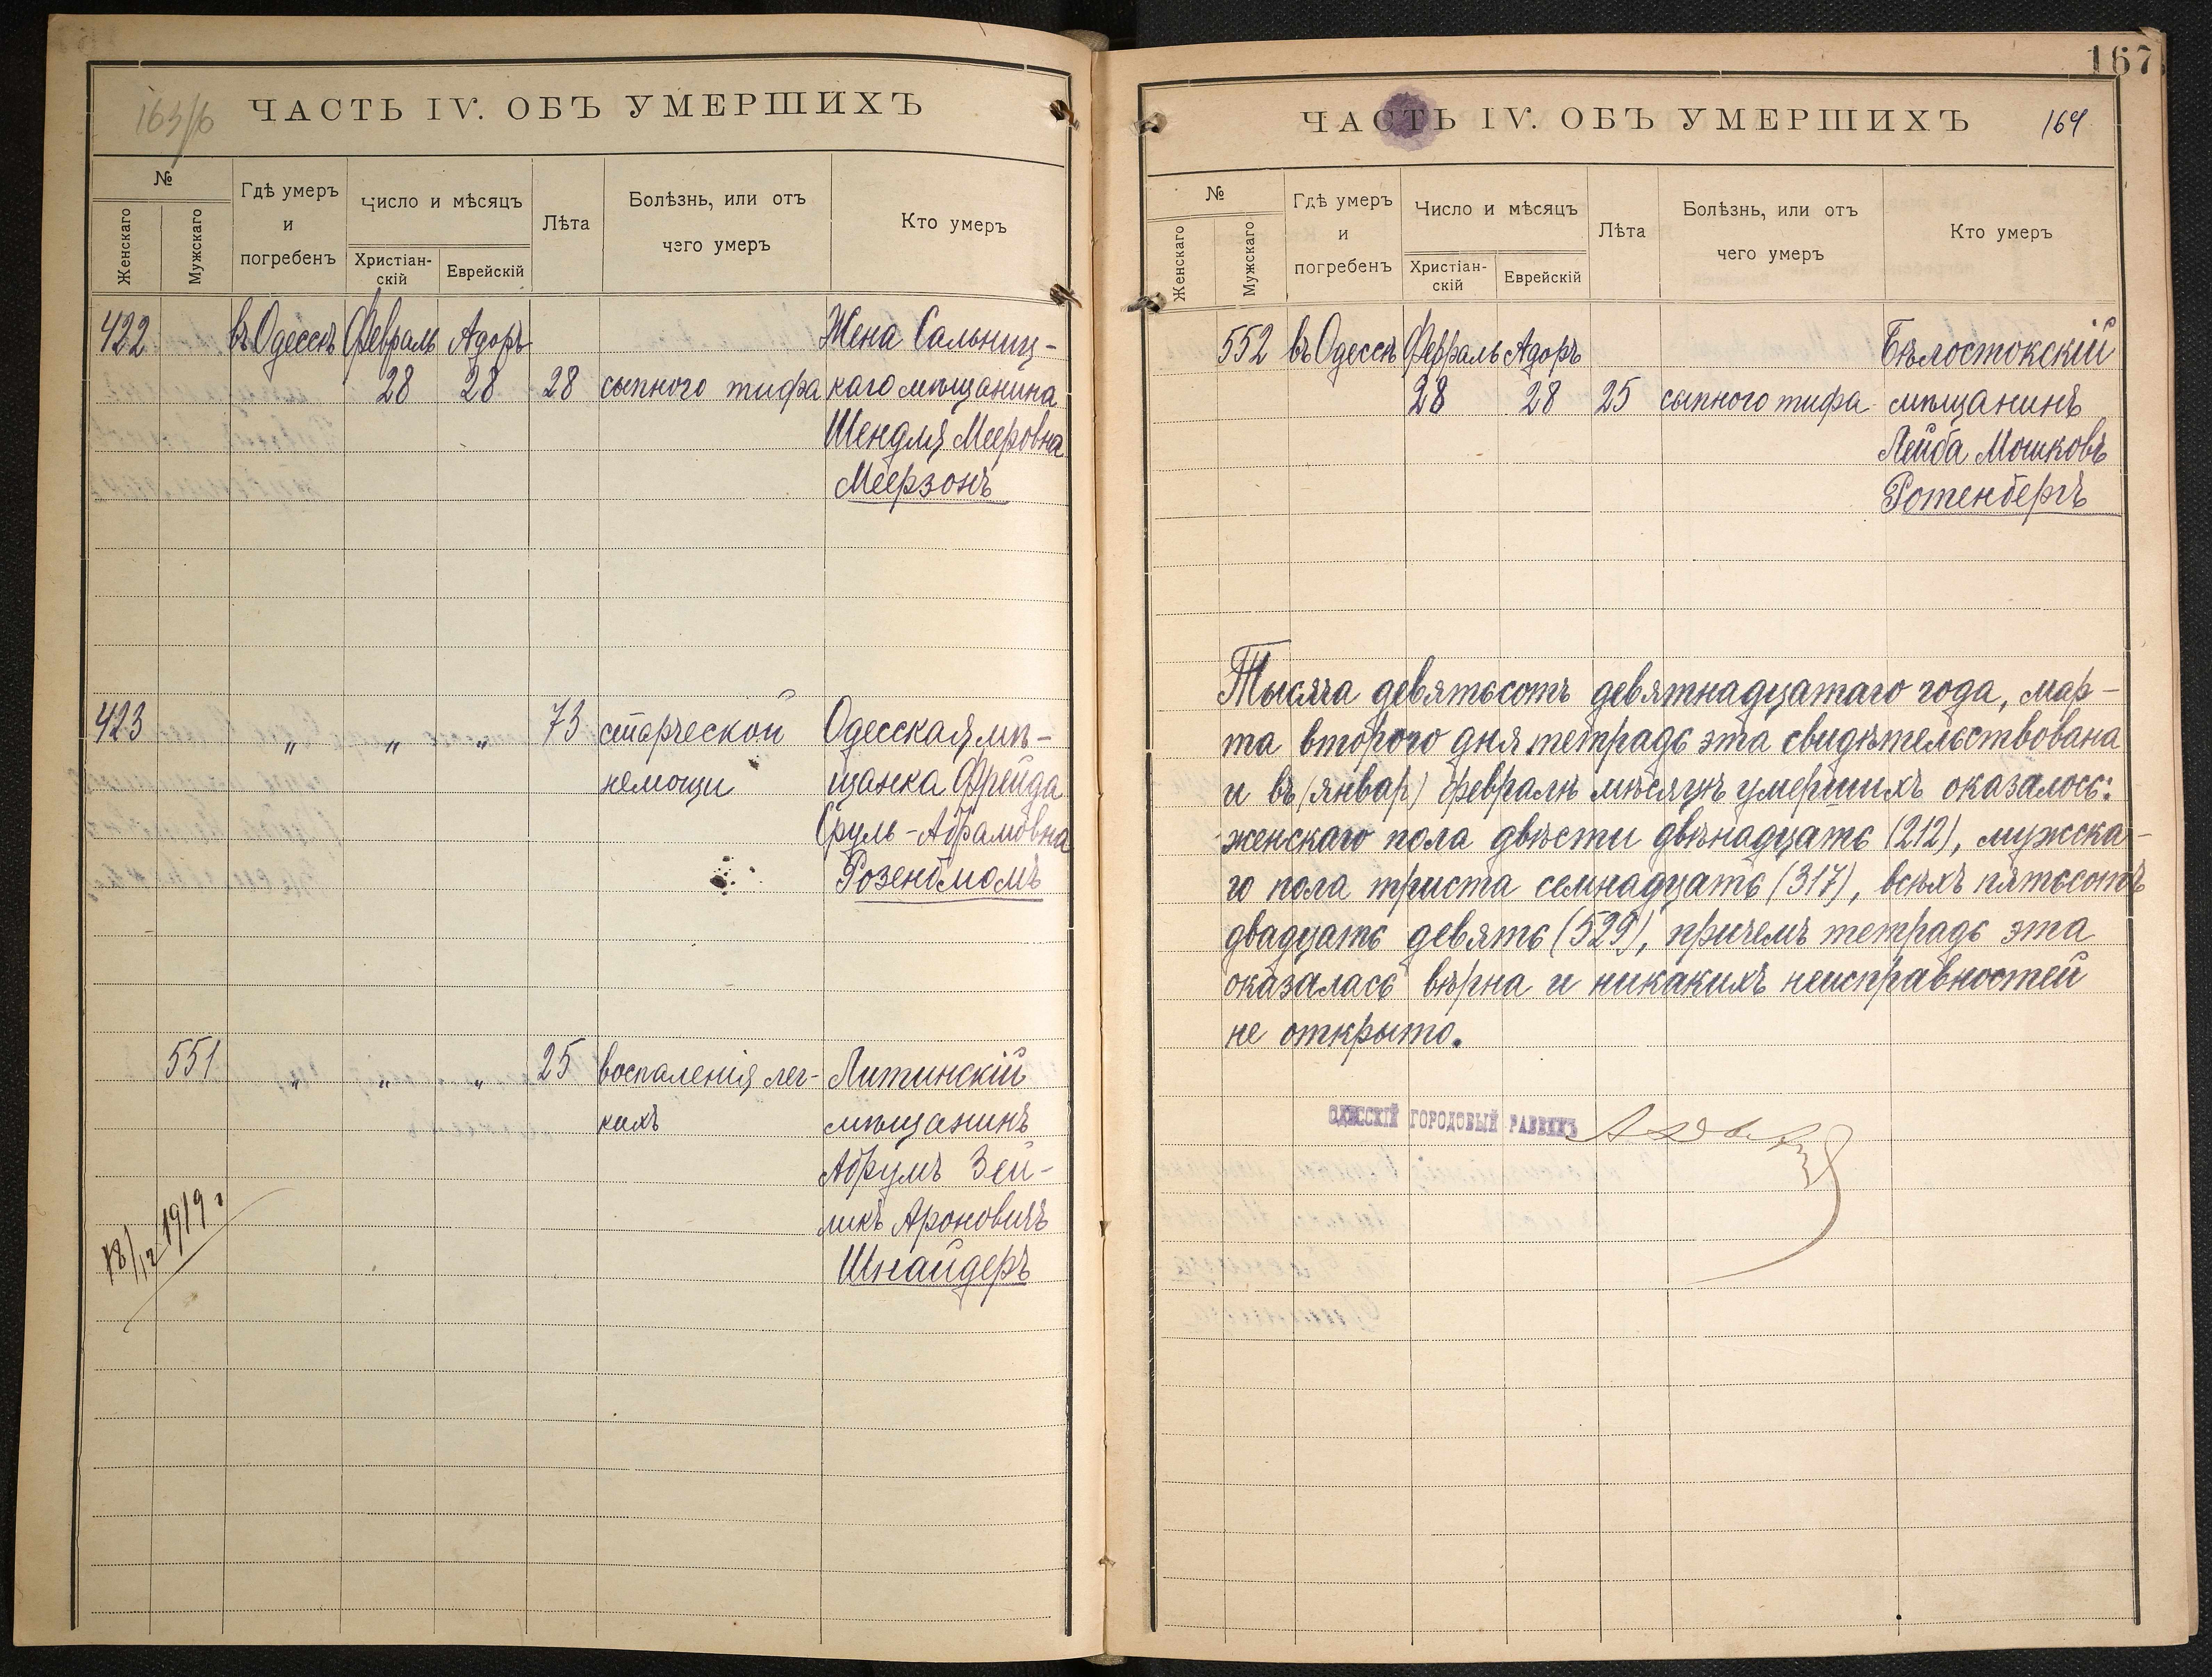 163/6
ЧАСТЬ IV. ОБЪ УМЕРШИХЪ
№
Женскаго
Мужскаго
Гдѣ умеръ
и
погребенъ
Число и мѣсяцъ
Христіан-
скій
Еврейскій
Лѣта
Болѣзнь, или отъ
чего умеръ
Кто умеръ
422 въ Одессѣ Февраль Адоръ Жена Сальниц-
28 28 28 сыпного тифа каго мѣщанина
Шендля Мееровна
Меерзонъ
423 „ „ „ 73 старческой Одесская мѣ-
немощи щанка Фрейда
Сруль-Абрамовна
Розенбломъ
551 „ „ „ 25 воспаленія лег- Литинскій
кихъ мѣщанинъ
Абрумъ Зей-
ликъ Ароновичъ
Шнайдеръ
18/12 1919 г
167
ЧАСТЬ IV. ОБЪ УМЕРШИХЪ 164
№
Женскаго
Мужскаго
Гдѣ умеръ
и
погребенъ
Число и мѣсяцъ
Христіан-
скій
Еврейскій
Лѣта
Болѣзнь, или отъ
чего умеръ
Кто умеръ
552 въ Одессѣ Февраль Адоръ Бѣлостокскій
28 28 25 сыпного тифа мѣщанинъ
Лейба Мошковъ
Ротенбергъ
Тысяча девятьсотъ девятнадцатаго года, мар-
та второго дня тетрадь эта свидѣтельствована
и въ (январ) февралѣ мѣсяцѣ умершихъ оказалось:
женскаго пола двѣсти двѣнадцать (212), мужска-
го пола триста семнадцать (317), всѣхъ пятьсотъ
двадцать девять (529), причемъ тетрадь эта
оказалась вѣрна и никакихъ неисправностей
не открыто.
ОДЕССКІЙ ГОРОДОВЫЙ РАВВИНЪ